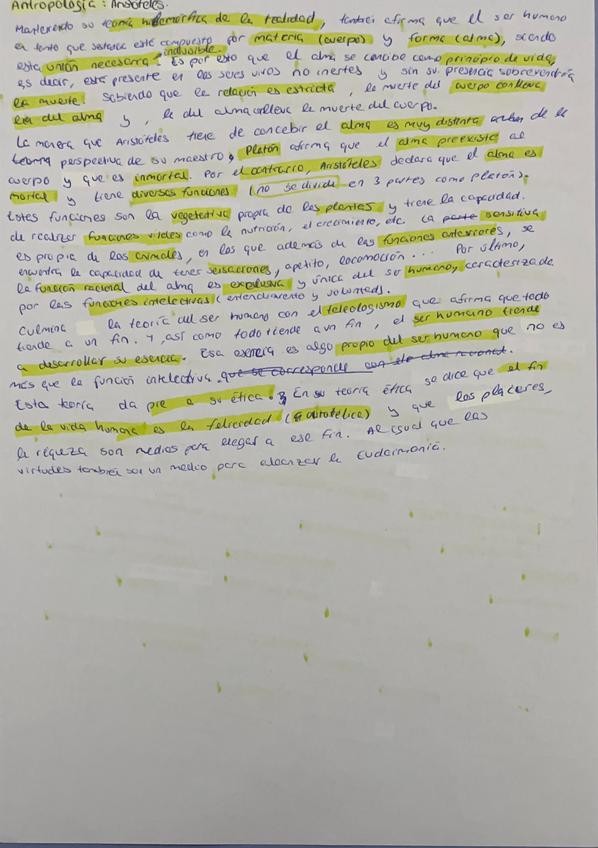 Antropología: Aristóteles.
Manteniendo su teoría hilemórfica de la realidad, también afirma que el ser humano
en tanto que sustancia esté compuesto por materia (cuerpo) y forma (alma), siendo
esta unión necesaria indivisible. Es por esto que el alma se concibe como principio de vida,
es decir, está presente en los seres vivos no inertes y sin su presencia sobrevendría
la muerte. Sabiendo que la relación es estricta, la muerte del cuerpo conlleva
la del alma y, la del alma conlleva la muerte del cuerpo.
La manera que Aristóteles tiene de concebir el alma es muy distinta de la
perspectiva de su maestro, Platón afirma que el alma preexiste al
cuerpo y que es inmortal. Por el contrario, Aristóteles declara que el alma es
mortal y tiene diversas funciones (no se divide en 3 partes como Platón).
Estas funciones son la vegetativa propia de las plantas y tiene la capacidad
de realizar funciones vitales como la nutrición, el crecimiento, etc. La parte sensitiva
es propia de los animales, en los que además de las funciones anteriores, se
encuentra la capacidad de tener sensaciones, apetito, locomoción... Por último,
la función racional del alma es exclusiva y única del ser humano, caracterizada
por las funciones intelectivas (entendimiento y voluntad).
Culmina la teoría del ser humano con el teleologismo que afirma que todo
tiende a un fin. Y, así como todo tiende a un fin, el ser humano tiende
a desarrollar su esencia. Esa esencia es algo propio del ser humano que no es
más que la función intelectiva. que se corresponde con
Esta teoría da pie a su ética. En su teoría ética se dice que el fin
de la vida humana es la felicidad (autotélica) y que los placeres,
la riqueza son medios para llegar a ese fin. Al igual que las
virtudes también son un medio para alcanzar la eudaimonía.